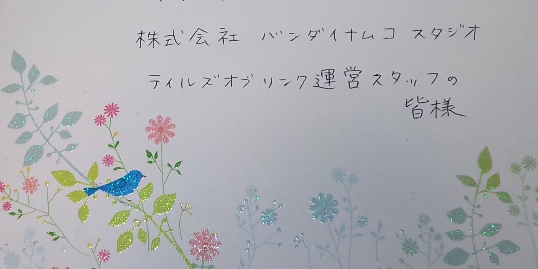 株式会社 バンダイナムコ スタジオ
テイルズオブリンク運営スタッフの
皆様